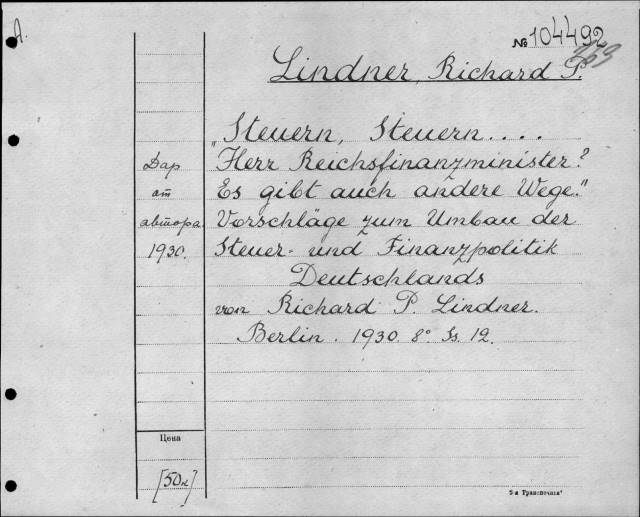 А.
№ 104492
Lindner, Richard P.
„Steuern, Steuern....
Herr Reichsfinanzminister?
Es gibt auch andere Wege."
Vorschläge zum Umbau der
Steuer- und Finanzpolitik
Deutschlands
von Richard P. Lindner.
Berlin. 1930. 8° Ss. 12.
Дар
от
автора.
1930.
Цена
[50к]
5-я Транспечать